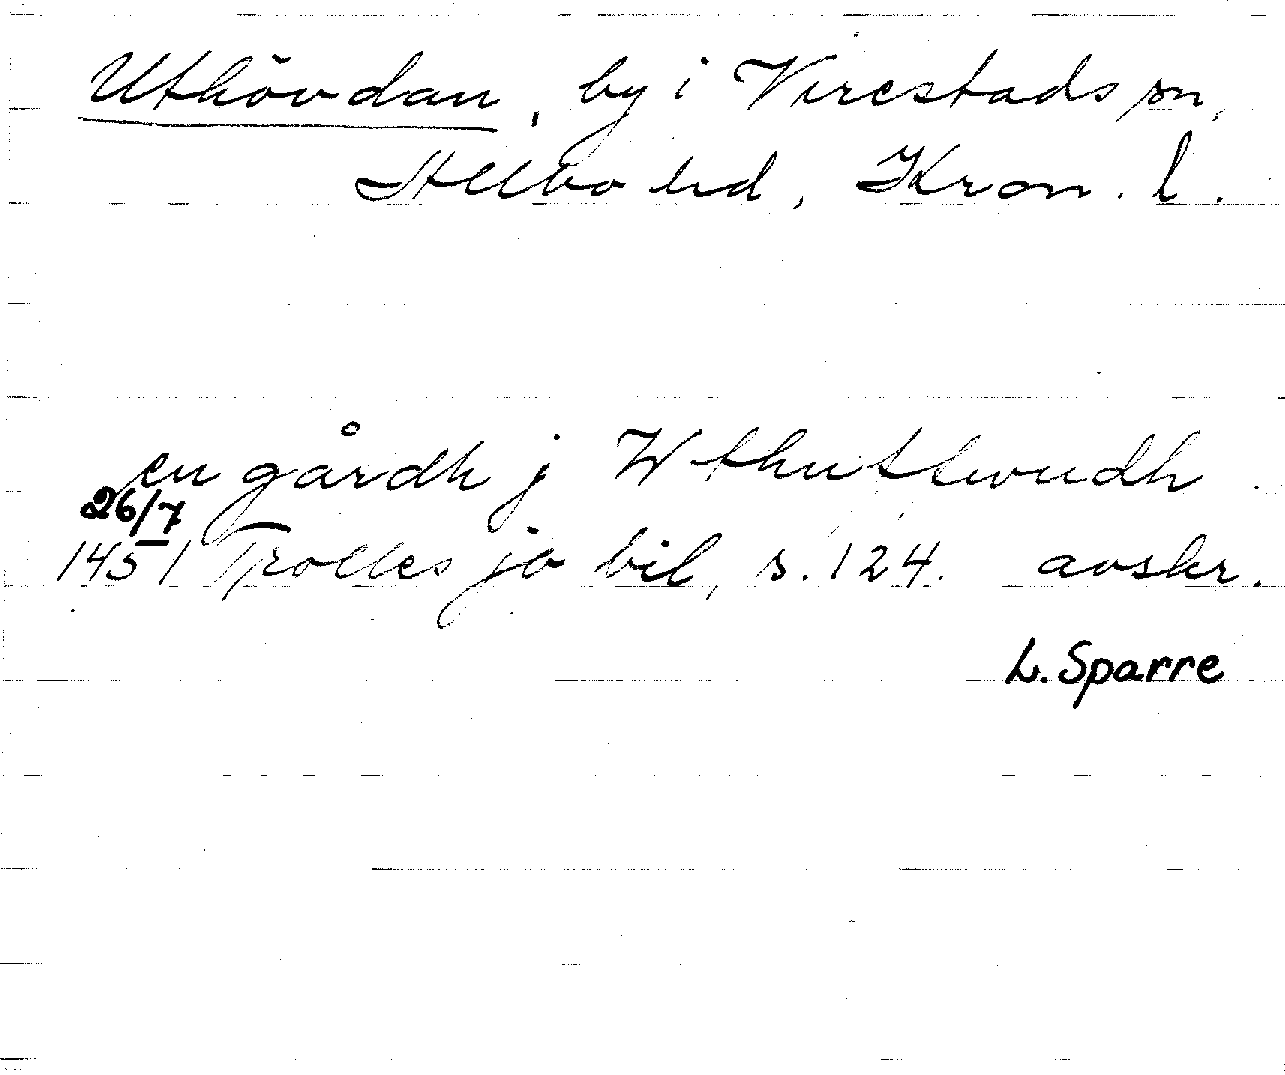 Uthövdan, by i Virestads sn,
Allbo hd, Kron. l.
en gårdh j Wthuttwudh
26/7
1451 Trollesjö bil, s. 124. avskr.
L. Sparre